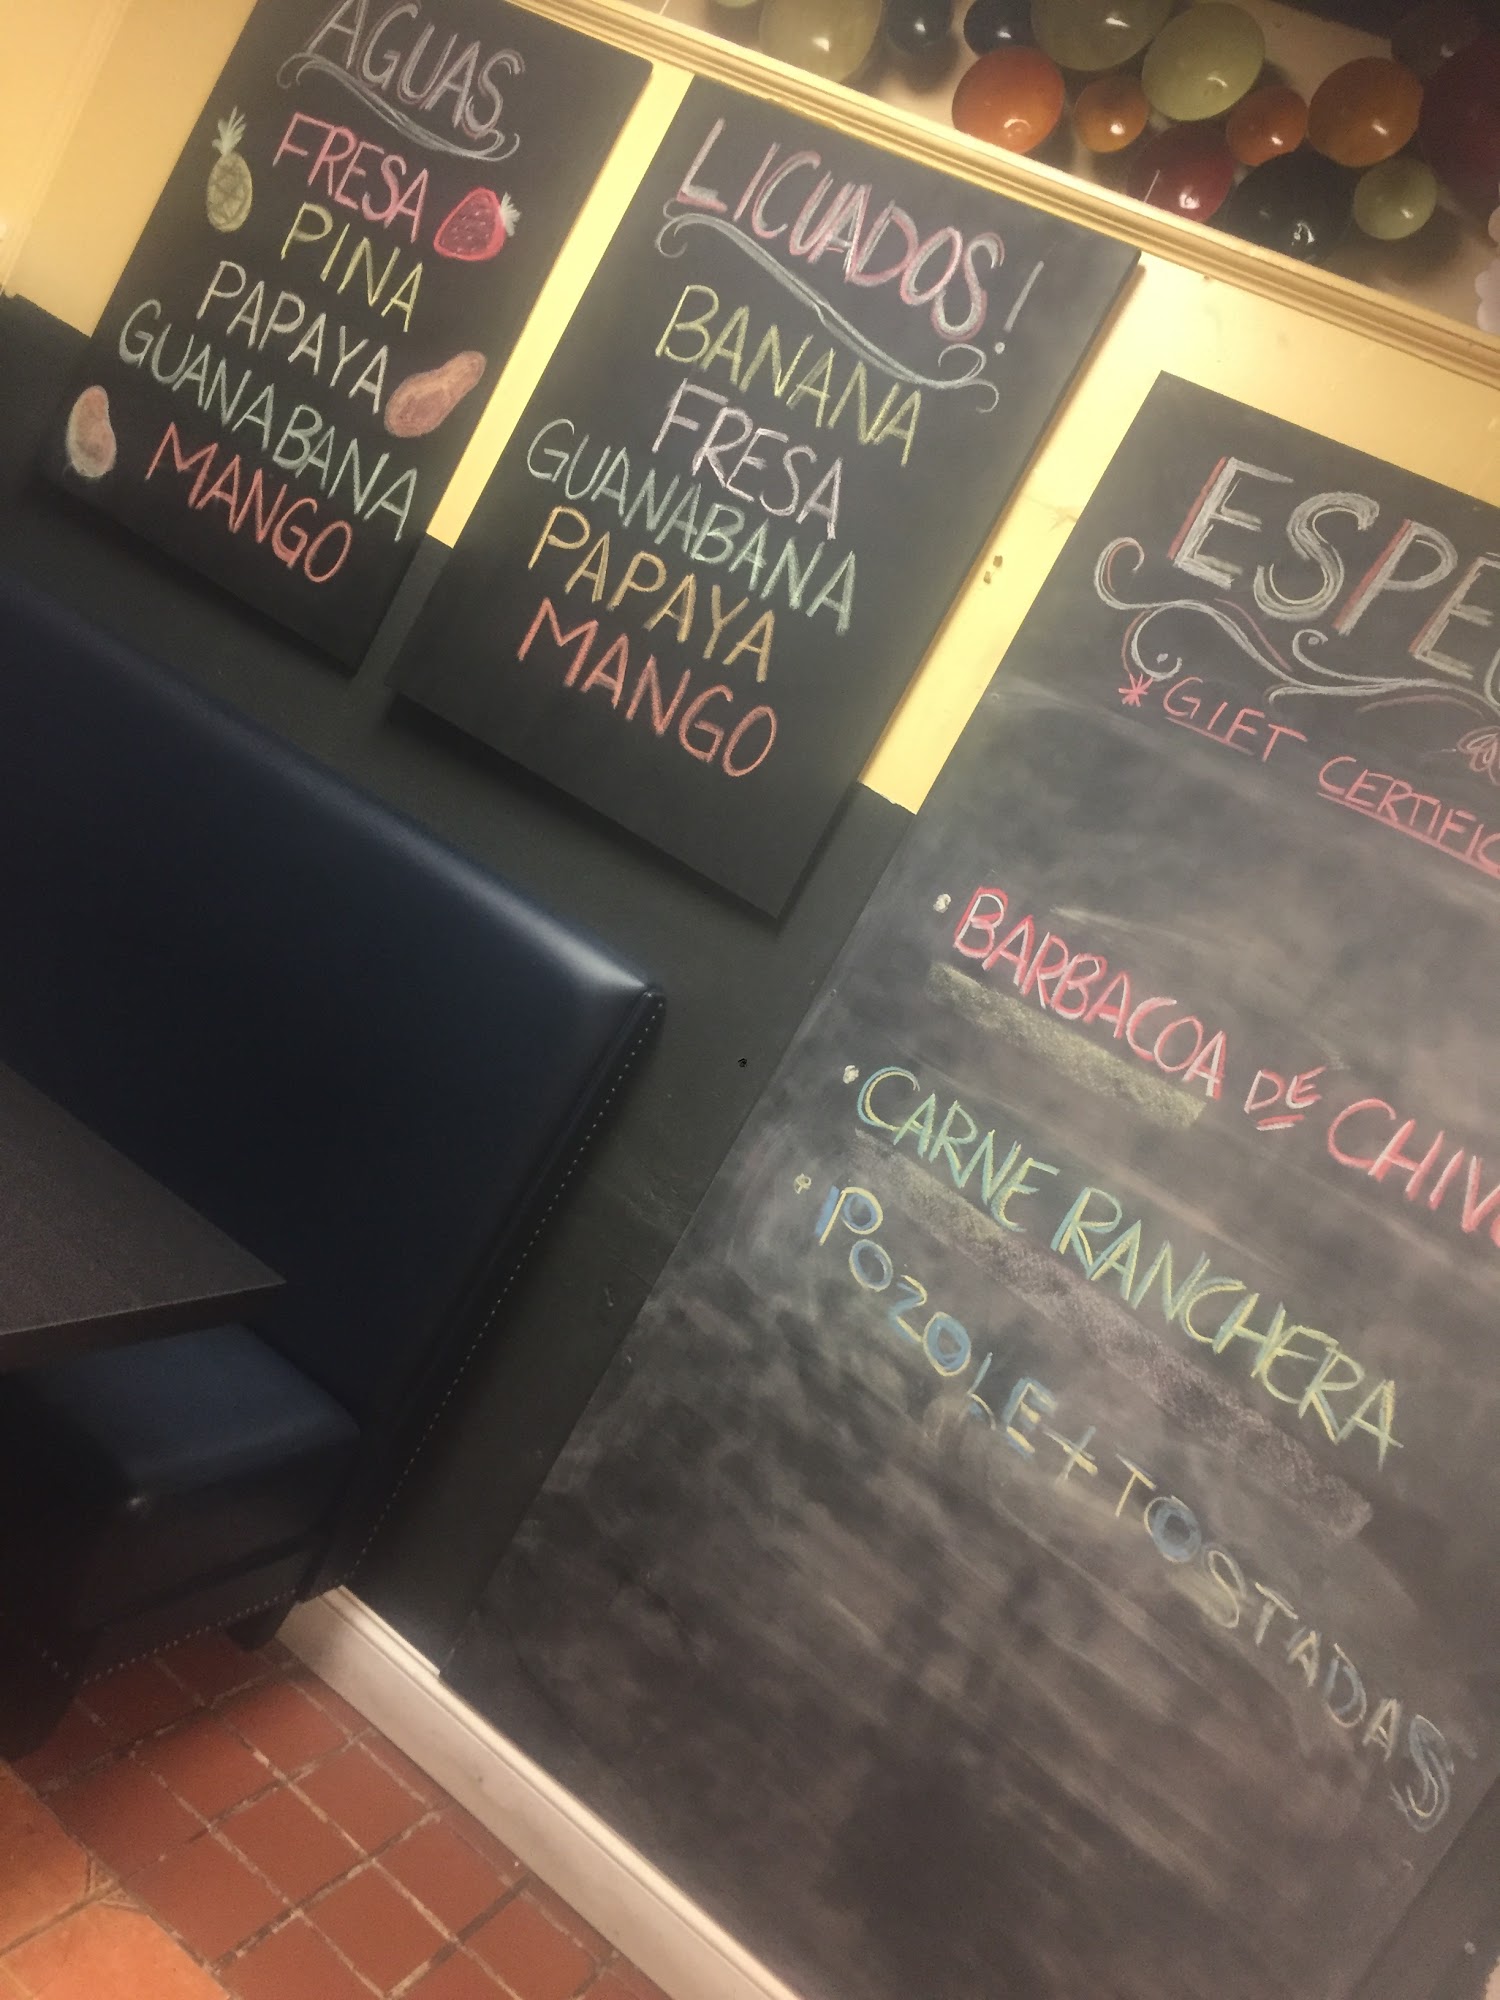 AGUAS
FRESA
PINA
PAPAYA
GUANABANA
MANGO
LICUADOS!
BANANA
FRESA
GUANABANA
PAPAYA
MANGO
* GIFT
• BARBACOA DE
• CARNE RANCHERA
• POZOLE + TOSTADAS